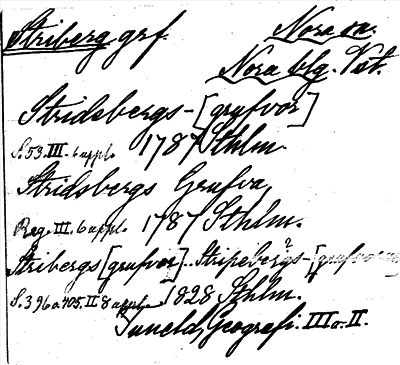 Striberg grf. Nora sn.
Nora blg. Vst.
Stridsbergs-[grufvor]
S. 53. III. 6 uppl. 1787 Sthlm.
Stridsbergs Grufva,
Reg. III. 6 uppl. 1787 Sthlm.
Stribergs [grufvor].. Stripebergs-[grufvor
S. 396 o. 405. II 8 uppl. 1828 Sthlm.
Tuneld, Geografi. III o. II.